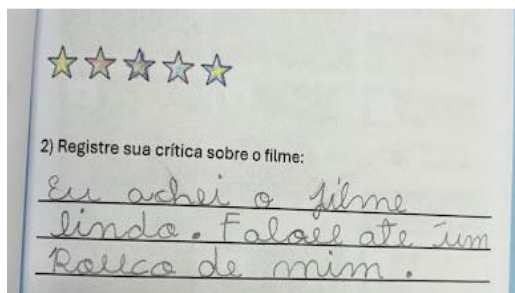 2) Registre sua crítica sobre o filme:
Eu achei o filme
lindo. Falou ate um
Pouco de mim.